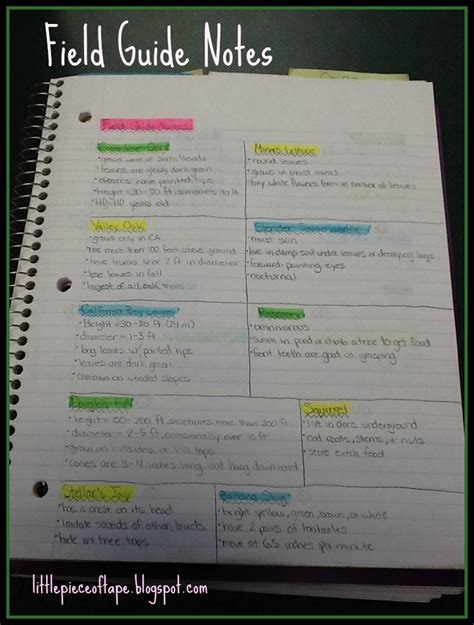 Field Guide Notes
Field Guide Notes
Coast Live Oak
• grows west of Sierra Nevada
• leaves are glossy dark green
• acorns have pointed tips
• height = 30-50 ft, sometimes 70 ft
years old
Miners Lettuce
• round leaves
• grows in moist areas
• tiny white flowers form in center of leaves
Valley Oak
• grows only in CA
• not more than 100 feet above ground
• have trunks 6 or 7 ft in diameter
• lose leaves in fall
• largest of all oak trees
Slender Salamander
• moist skin
• live in damp soil under leaves or decaying logs
• forward-pointing eyes
• nocturnal
California Bay Laurel
• Height = 30-70 ft (24 m)
• diameter = 1-3 ft
• long leaves w/ pointed tips
• leaves are dark green
• common on wooded slopes
Raccoon
• omnivorous
• swim in pond or climb a tree to get food
• front teeth are good at grasping
Douglas Fir
• height = 80-200 ft, sometimes more than 200 ft
• diameter = 2-5 ft, occasionally over 10 ft
• grow on hillsides or hill tops
• cones are 3-4 inches long and hang downward
Squirrel
• live in dens underground
• eat roots, stems, + nuts
• store extra food
Steller's Jay
• has a crest on its head
• imitate sounds of other birds
• hide in tree tops
Banana Slug
• bright yellow, green, brown, or white
• have 2 pairs of tentacles
• move at 6.5 inches per minute
littlepieceoftape.blogspot.com